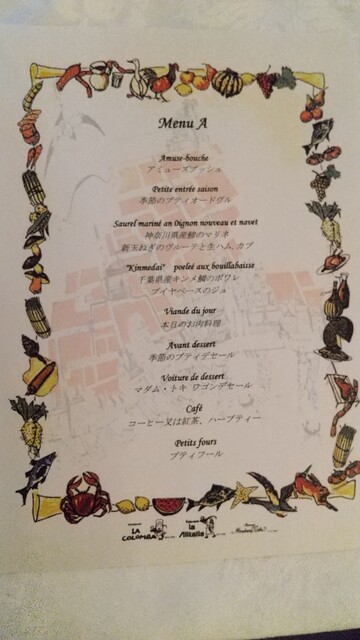 Menu A
Amuse-bouche
アミューズブッシュ
Petite entrée saison
季節のプティオードヴル
Saurel mariné an Oignon nouveau et navet
神奈川県産鯵のマリネ
新玉ねぎのヴルーテと生ハム、カブ
"Kinmedai" poeleé aux bouillabaisse
千葉県産キンメ鯛のポワレ
ブイヤベースのジュ
Viande du jour
本日のお肉料理
Avant dessert
季節のプティデセール
Voiture de dessert
マダム・トキ ワゴンデセール
Café
コーヒー又は紅茶、ハーブティー
Petits fours
プティフール
LA COLOMBA
la